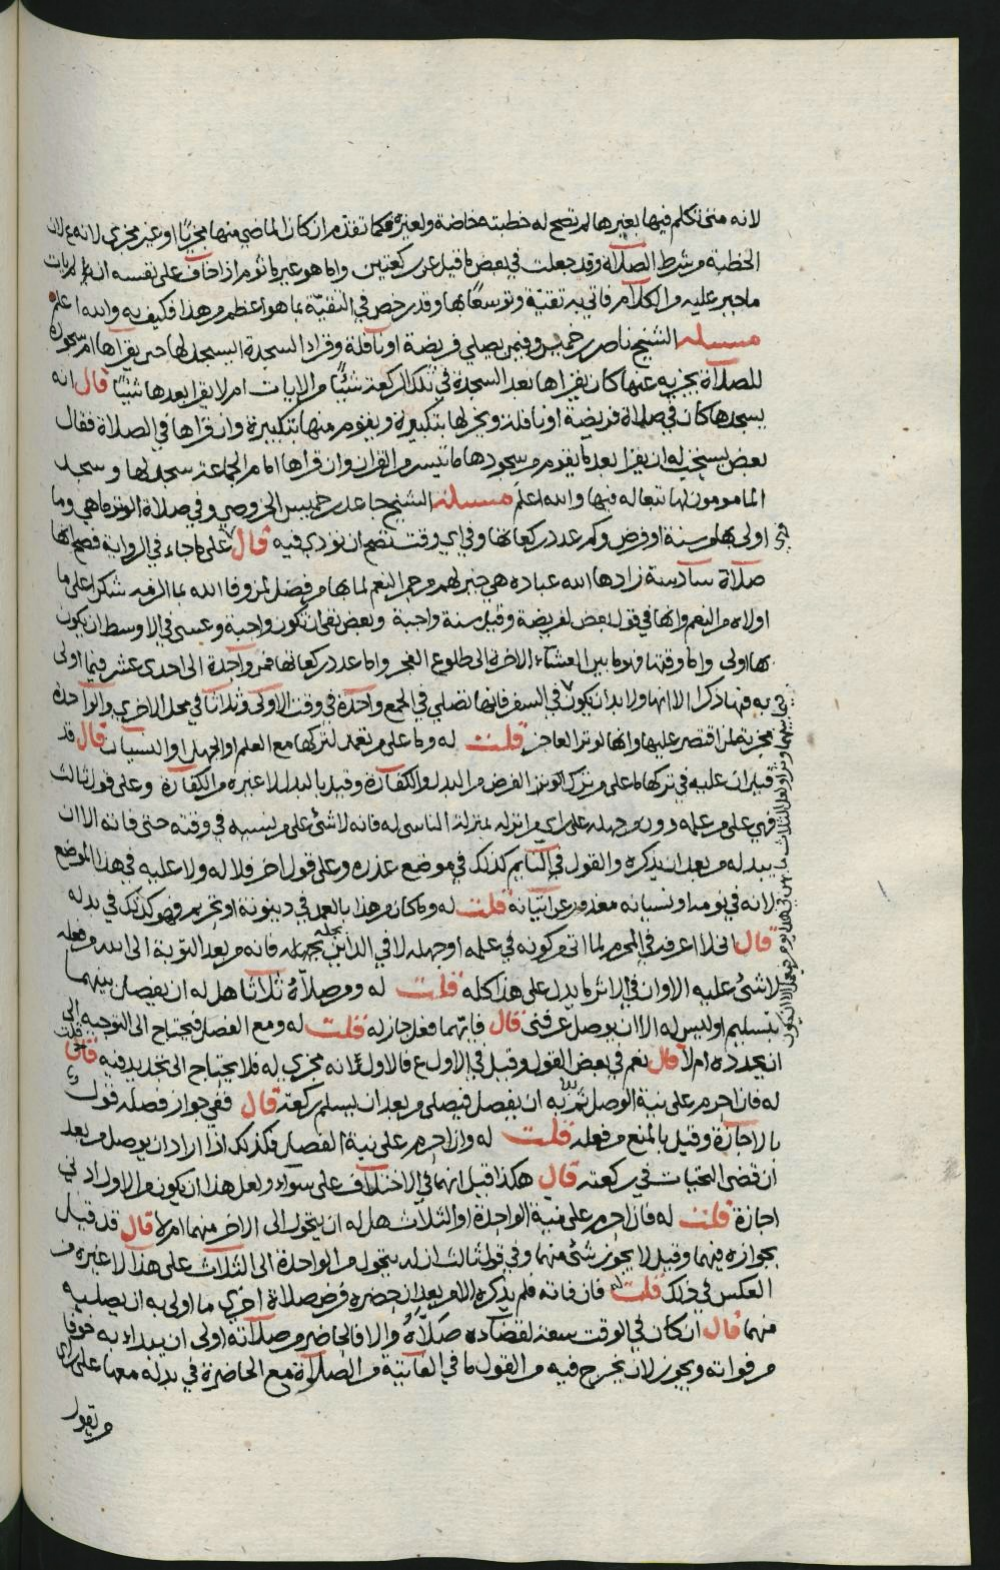 لانه متى تكلم فيها بغيرها لم تصح له خطبته خاصة ولغيره فكما تقدم ان كان الماضي منها مجزيا او غير مجزي لانه لان
الخطبة من شرط الصلاة وقد جعلت في بعض ما قيل عن ركعتين واما هو غير ماثوم اذا خاف على نفسه ان لم يات
ما جبر عليه من الكلام فاتي به تقيّة وتوسعا بها وقد رخص في التقيّة بما هو اعظم من هذا فكيف به والله اعلم
مسئلة الشيخ ناصر بن خميس وفيمن يصلي فريضة او نافلة وقرا السجدة ايسجد لها حين يقراها ام سجوده
للصلاة يجزيه عنها كان يقراها بعد السجدة في تلك الركعة شيئا من الايات ام لا يقرا بعدها شيئا قال انه
يسجدها كان في صلاة فريضة او نافلة ويخر لها بتكبيرة ويقوم منها بتكبيرة وان قراها في الصلاة فقال
بعض يستحب له ان يقرا بعد ما يقوم من سجودها ما تيسر من القران وان قراها امام الجماعة سجد لها وسجد
المامومون لها تبعا له فيها والله اعلم مسئلة الشيخ جاعد بن خميس الخروصي وفي صلاة الوتر ما هي وما
اولى بها من سنة او فرض وكم عدد ركعاتها وفي اي وقت تصح ان تودي فيه قال على ما جاء في الرواية فصح انها
صلاة سادسة زادها الله عباده هي خير لهم من حمر النعم لما بها من فضل لمن وفا الله بما الزمه شكرا على ما
اولاه من النعم وانها في قول بعض لفريضة وقيل سنة واجبة وبعض نفى ان تكون واجبة وعسى في الاوسط ان يكون
بها اولى واما وقتها فهو ما بين العشاء الاخرة الى طلوع الفجر واما عدد ركعاتها فمن واحدة الى احدى عشر فيما اولى
به منها ذكرا الا انها ولا بد ان يكون في السفر فانها تصلي في الجمع واحدة في وقت الاولى وثلاثا في محل الاخرى والواحدة
مجزية لمن اقتصر عليها وانها لوتر العاجز قلت له وما على من تعمد لتركها مع العلم او الجهل او النسيان قال قد
قيل ان عليه في تركها ما على من ترك الوتر الفرض من البدل والكفارة وقيل بالبدل لا غيره من الكفارة وعلى قول ثالث
فهي على من علمه دون من جهله على راي من انزله بمنزلة الناسي له فانه لا شئ على من نسيه في وقته حتى فاته الا ان
يبدله من بعد ان يذكره والقول في النايم كذلك في موضع عذره وعلى قول اخر فلا له ولا عليه في هذا الموضع
لانه في نومه او نسيانه معذور عن اتيانه قلت له وما كان من هذا بالعمد في دينونة او تحريم فهو كذلك في بدله
قال الذي اعرفه في المحرم لما اتى من كونه في علمه او جهله لا في الداين بجهله فانه من بعد التوبة الى الله من فعله
لا شئ عليه الا وان في الاثر ما يدل على هذا كله قلت له ومن صلاه ثلاثا هل له ان يفصل بينهما
بتسليم اوليس له الا ان يوصل عرفني قال فايهما فعل جاز له قلت له ومع الفصل فيحتاج الى التوجيه الى
ان يجدده ام لا قال نعم في بعض القول وقيل في الاول ع فالاول لانه مجزي له فلا يحتاج الى تجديد فيه قلت
له فان احرم على نية الوصل ثم بدا له ان يفصل فيصلي من بعد ان يسلم ركعة قال ففي جواز فصله قول
بالاجازة وقيل بالمنع من فعله قلت له وان احرم على نية الفصل فكذلك اذا اراد ان يوصل من بعد
ان قضى التحيات في ركعته قال هكذا قيل انهما في الاختلاف على سواء ولعل هذا ان يكون من الاول ادنى
اجازة قلت له فان احرم على نية الواحدة او الثلاث هل له ان يتحول الى الاخر منهما ام لا قال قد قيل
بجوازه فيهما وقيل لا يجوز شئ منهما وفي قول ثالث ان له يتحول من الواحدة الى الثلاث على هذا لا غيره من
العكس في ذلك قلت له فان فاته فلم يذكره الا من بعد ان حضره فرض صلاة اخرى ما اولى به ان يصليه
منهما قال ان كان في الوقت سعة لقضاء ده صلاه والا فالحاضر من صلاته اولى ان يبداء به خوفا
من فواته ويجوز لان يخرج فيه من القول ما في الفايتة من الصلاة مع الحاضرة في بدله معها على راي
من يقول